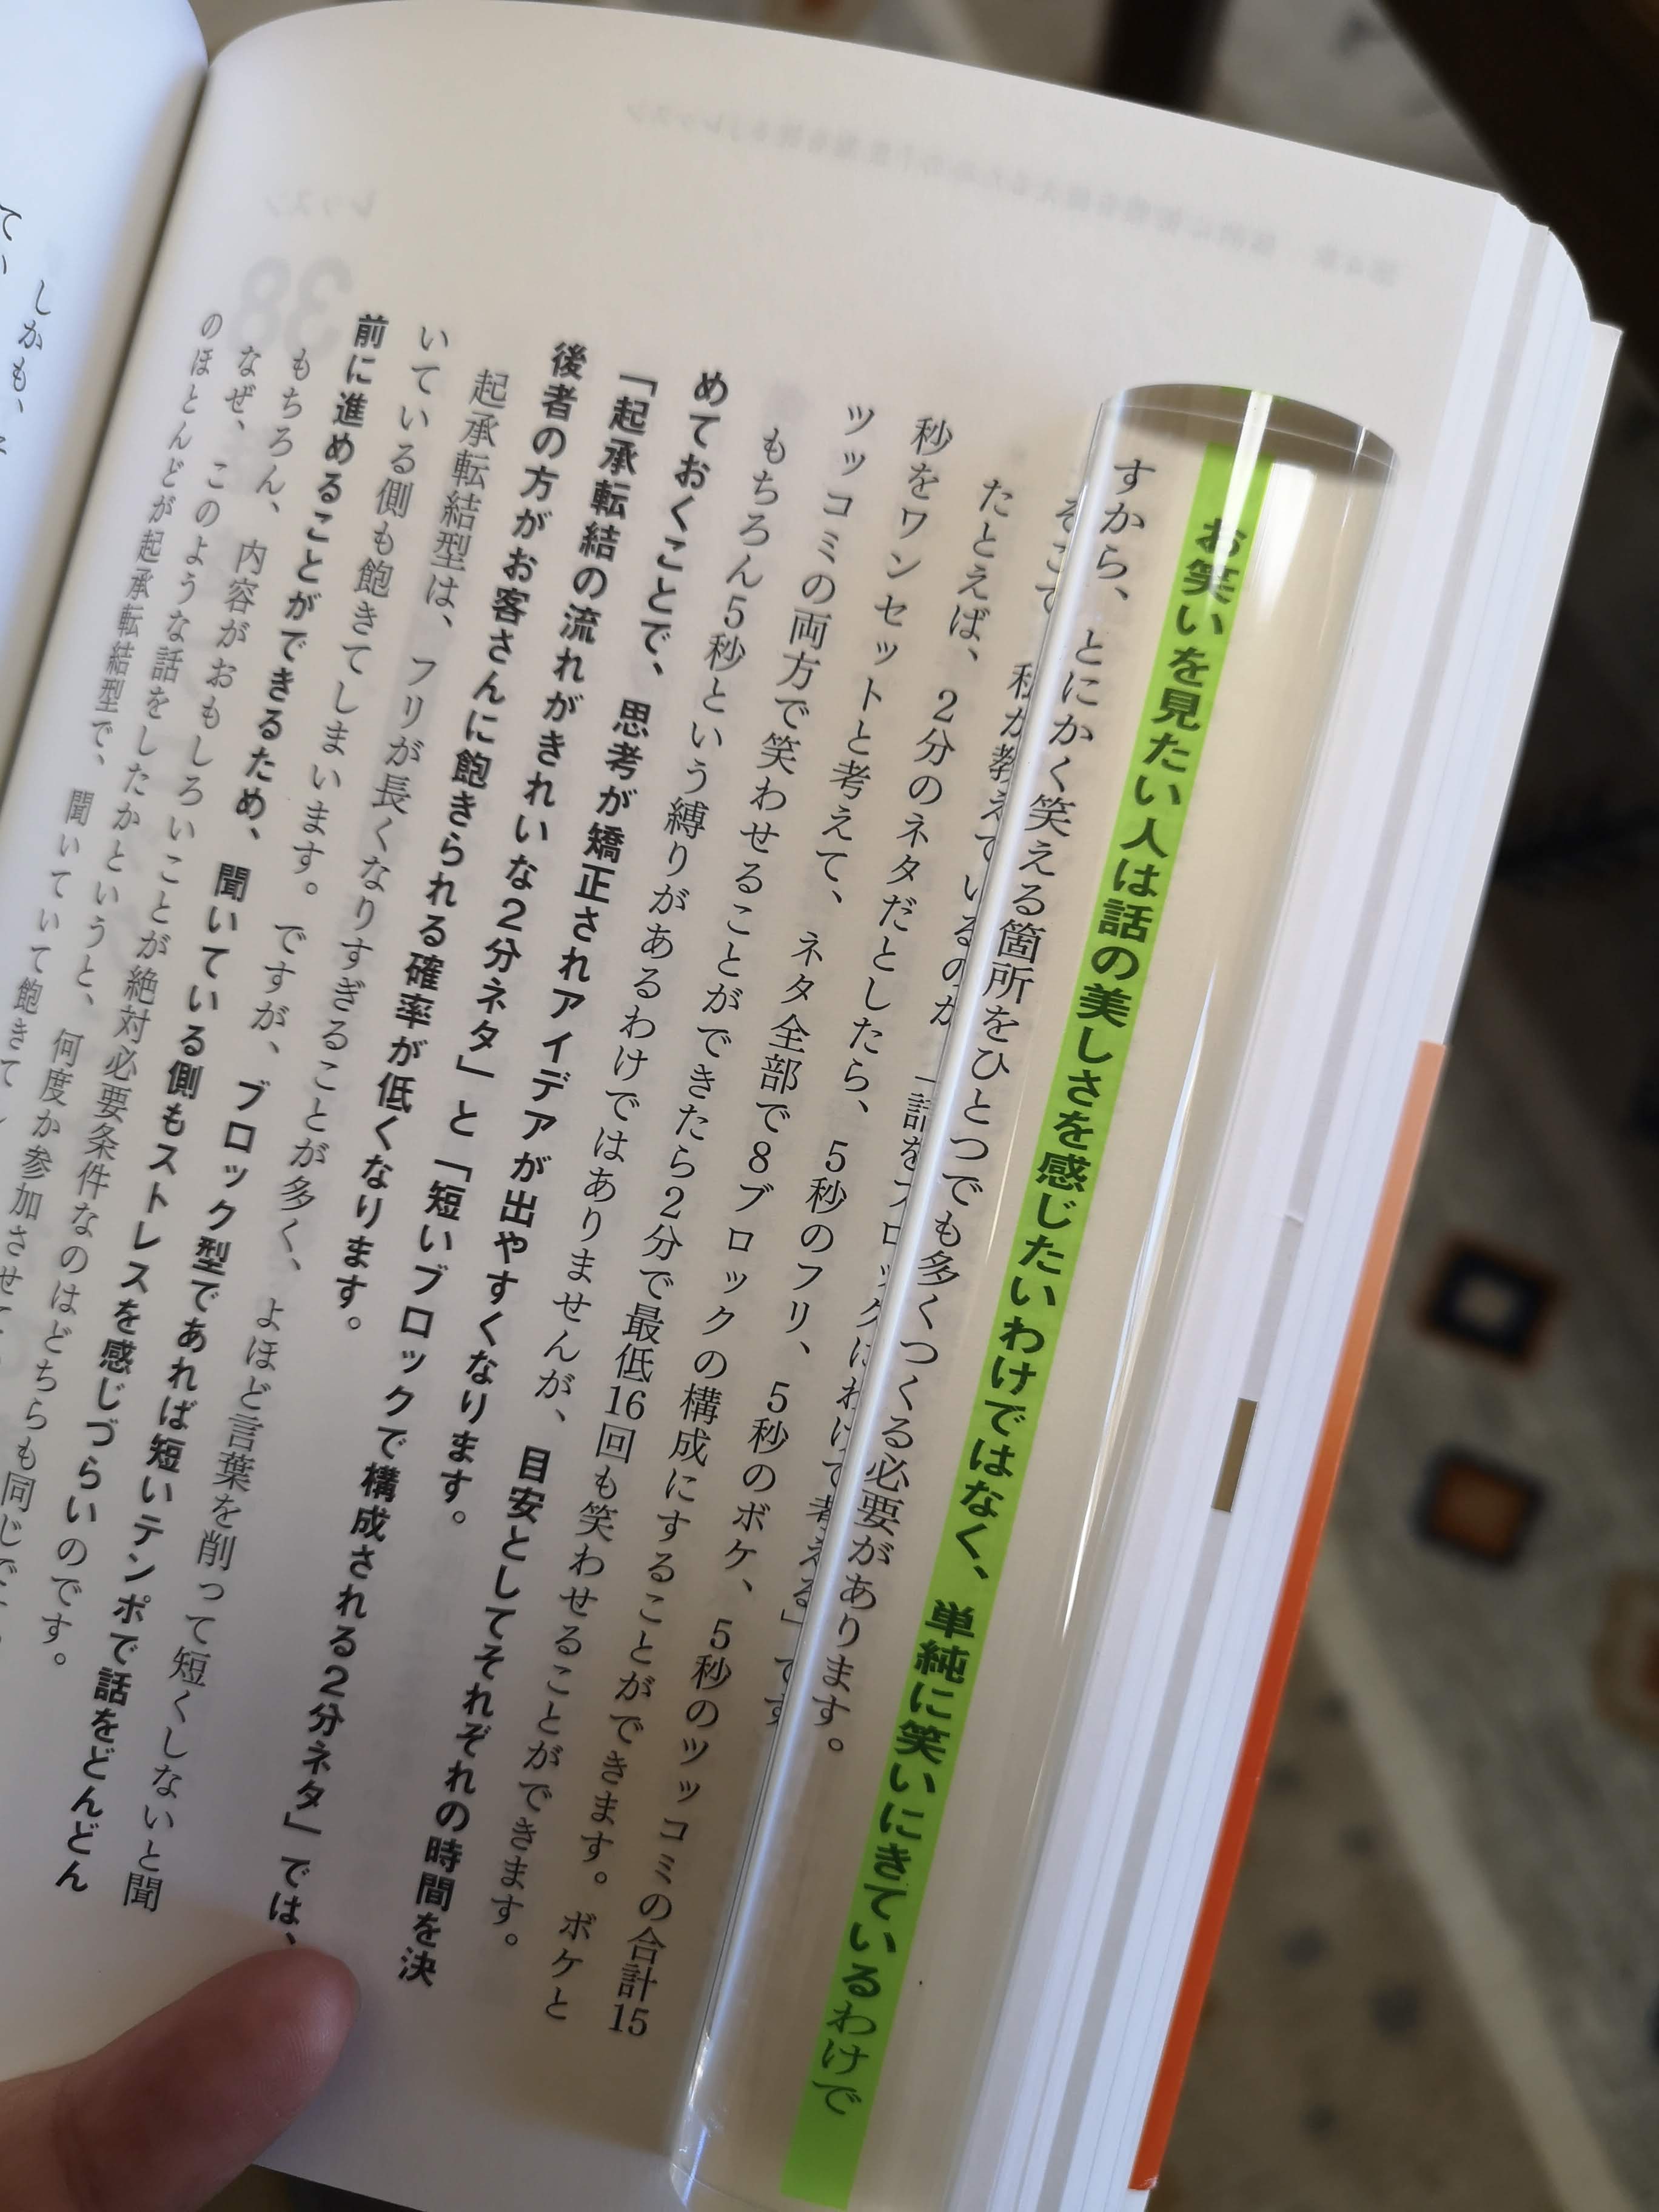 お笑いを見たい人は話の美しさを感じたいわけではなく、単純に笑いにきているわけで
すから、とにかく笑える箇所をひとつでも多くつくる必要があります。
そこで 私が教えているのが「話をブロックにわけて考える」です
たとえば、2分のネタだとしたら、5秒のフリ、5秒のボケ、5秒のツッコミの合計15
秒をワンセットと考えて、ネタ全部で8ブロックの構成にすることができます。ボケと
ツッコミの両方で笑わせることができたら2分で最低16回も笑わせることができます。
もちろん5秒という縛りがあるわけではありませんが、目安としてそれぞれの時間を決
めておくことで、思考が矯正されアイデアが出やすくなります。
「起承転結の流れがきれいな2分ネタ」と「短いブロックで構成される2分ネタ」では、
後者の方がお客さんに飽きられる確率が低くなります。
起承転結型は、フリが長くなりすぎることが多く、よほど言葉を削って短くしないと聞
いている側も飽きてしまいます。ですが、ブロック型であれば短いテンポで話をどんどん
前に進めることができるため、聞いている側もストレスを感じづらいのです。
もちろん、内容がおもしろいことが絶対必要条件なのはどちらも同じで
なぜ、このような話をしたかというと、何度か参加させて
のほとんどが起承転結型で、聞いていて飽きて
しかも、
レッスン
38